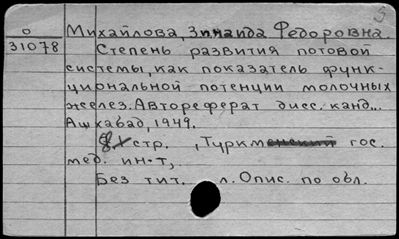 5
О Михайлова, Зинаида Федоровна.
31078 Степень развития потовой
системы, как показатель функ-
циональной потенции молочных
желез. Автореферат дисс. канд...
Ашхабад, 1949.
8 стр. , Туркменский гос.
мед. ин-т,
Без тит. л. Опис. по обл.